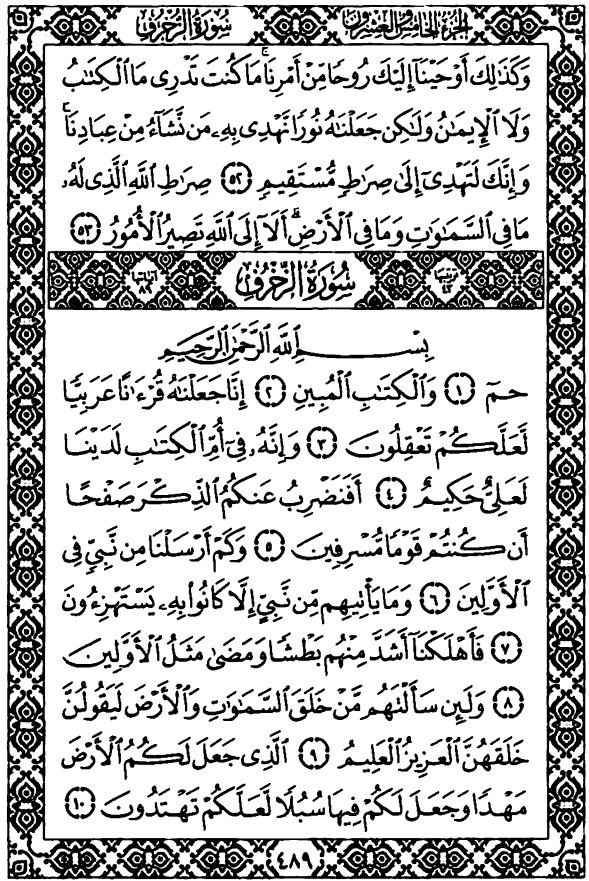 الجزء الخامس والعشرون سورة الزخرف
وَكَذَٰلِكَ أَوْحَيْنَآ إِلَيْكَ رُوحًا مِّنْ أَمْرِنَا ۚ مَا كُنتَ تَدْرِى مَا ٱلْكِتَٰبُ
وَلَا ٱلْإِيمَٰنُ وَلَٰكِن جَعَلْنَٰهُ نُورًا نَّهْدِى بِهِۦ مَن نَّشَآءُ مِنْ عِبَادِنَا ۚ
وَإِنَّكَ لَتَهْدِىٓ إِلَىٰ صِرَٰطٍ مُّسْتَقِيمٍ ٥٢ صِرَٰطِ ٱللَّهِ ٱلَّذِى لَهُۥ
مَا فِى ٱلسَّمَٰوَٰتِ وَمَا فِى ٱلْأَرْضِ ۗ أَلَآ إِلَى ٱللَّهِ تَصِيرُ ٱلْأُمُورُ ٥٣
ترتيبها ٤٣ سُورَةُ الزُّخْرُفِ آياتها ٨٩
بِسْمِ ٱللَّهِ ٱلرَّحْمَٰنِ ٱلرَّحِيمِ
حمٓ ١ وَٱلْكِتَٰبِ ٱلْمُبِينِ ٢ إِنَّا جَعَلْنَٰهُ قُرْءَٰنًا عَرَبِيًّا
لَّعَلَّكُمْ تَعْقِلُونَ ٣ وَإِنَّهُۥ فِىٓ أُمِّ ٱلْكِتَٰبِ لَدَيْنَا
لَعَلِىٌّ حَكِيمٌ ٤ أَفَنَضْرِبُ عَنكُمُ ٱلذِّكْرَ صَفْحًا
أَن كُنتُمْ قَوْمًا مُّسْرِفِينَ ٥ وَكَمْ أَرْسَلْنَا مِن نَّبِىٍّ فِى
ٱلْأَوَّلِينَ ٦ وَمَا يَأْتِيهِم مِّن نَّبِىٍّ إِلَّا كَانُوا۟ بِهِۦ يَسْتَهْزِءُونَ
٧ فَأَهْلَكْنَآ أَشَدَّ مِنْهُم بَطْشًا وَمَضَىٰ مَثَلُ ٱلْأَوَّلِينَ
٨ وَلَئِن سَأَلْتَهُم مَّنْ خَلَقَ ٱلسَّمَٰوَٰتِ وَٱلْأَرْضَ لَيَقُولُنَّ
خَلَقَهُنَّ ٱلْعَزِيزُ ٱلْعَلِيمُ ٩ ٱلَّذِى جَعَلَ لَكُمُ ٱلْأَرْضَ
مَهْدًا وَجَعَلَ لَكُمْ فِيهَا سُبُلًا لَّعَلَّكُمْ تَهْتَدُونَ ١٠
٤٨٩